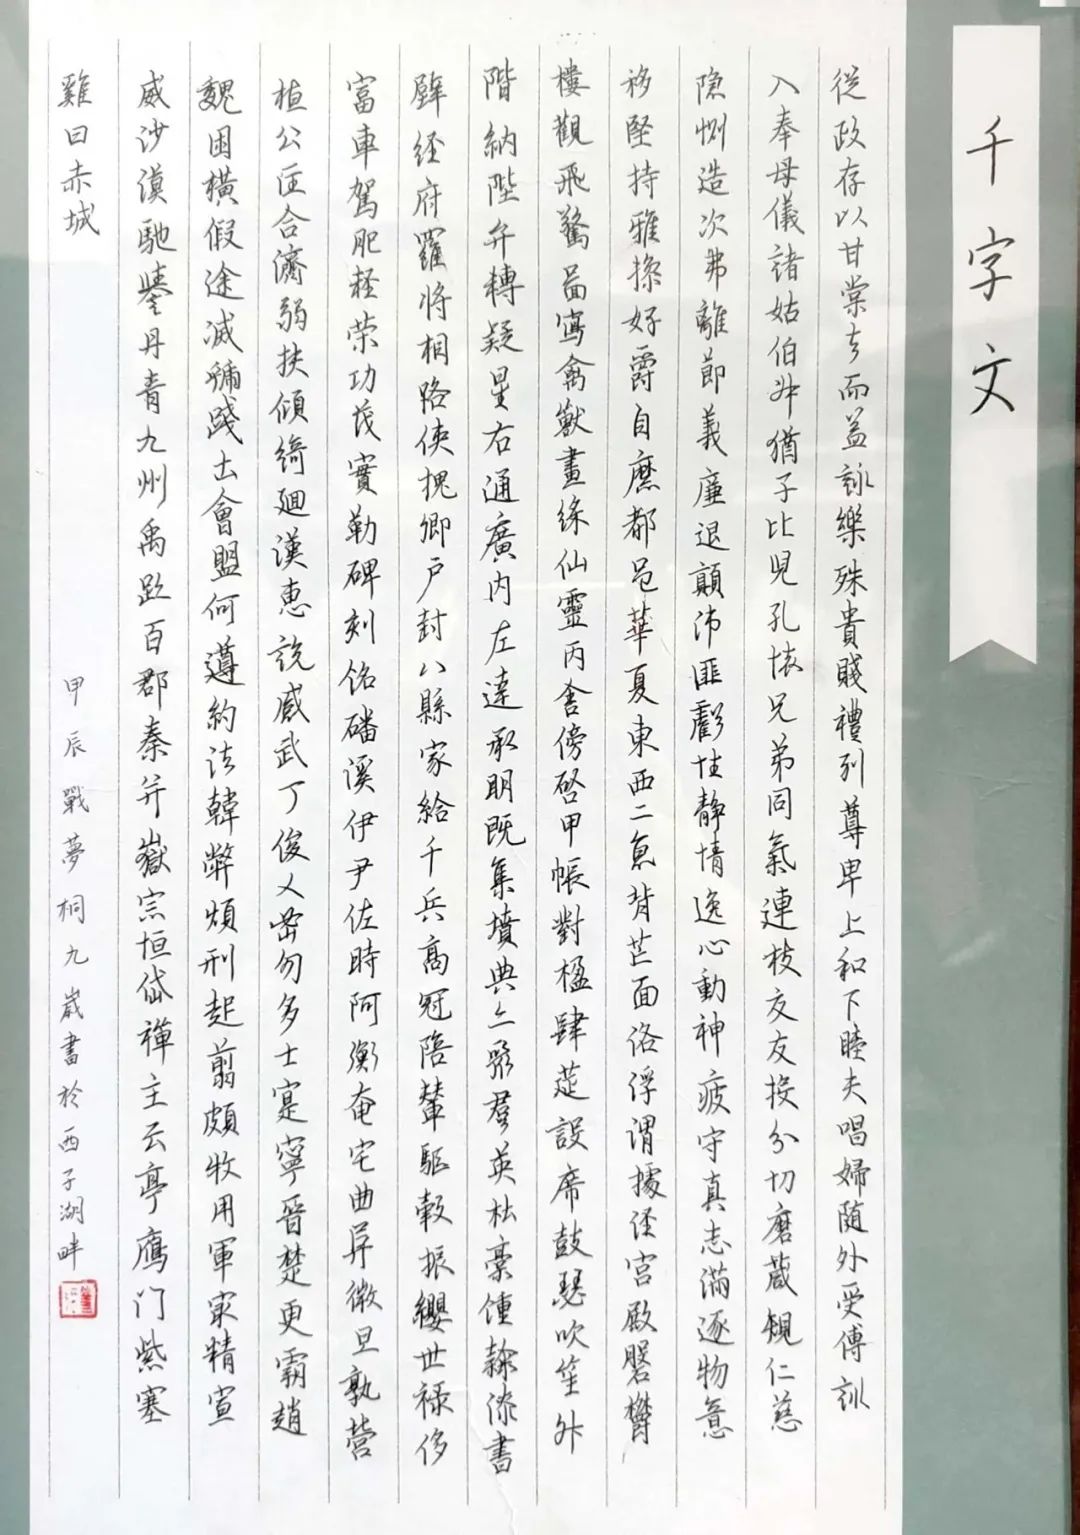 千字文
從政存以甘棠去而益詠樂殊貴賤禮別尊卑上和下睦夫唱婦隨外受傅訓
入奉母儀諸姑伯叔猶子比兒孔懷兄弟同氣連枝交友投分切磨箴規仁慈
隱惻造次弗離節義廉退顛沛匪虧性靜情逸心動神疲守真志滿逐物意
移堅持雅操好爵自縻都邑華夏東西二京背芒面洛浮渭據涇宮殿盤鬱
樓觀飛驚圖寫禽獸畫綵仙靈丙舍傍啓甲帳對楹肆筵設席鼓瑟吹笙升
階納陛弁轉疑星右通廣内左達承明既集墳典亦聚群英杜稾鍾隸漆書
壁経府羅将相路俠槐卿户封八縣家給千兵高冠陪輦驅轂振纓世禄侈
富車駕肥軽荣功茂實勒碑刻銘磻溪伊尹佐時阿衡奄宅曲阜微旦孰營
桓公匡合濟弱扶傾綺廻漢惠説感武丁俊乂密勿多士寔寧晉楚更霸趙
魏困横假途滅虢踐土會盟何遵約法韓弊煩刑起翦頗牧用軍冣精宣
威沙漠馳譽丹青九州禹跡百郡秦并嶽宗恒岱禪主云亭鴈门紫塞
雞田赤城
甲辰戰夢桐九歲書於西子湖畔